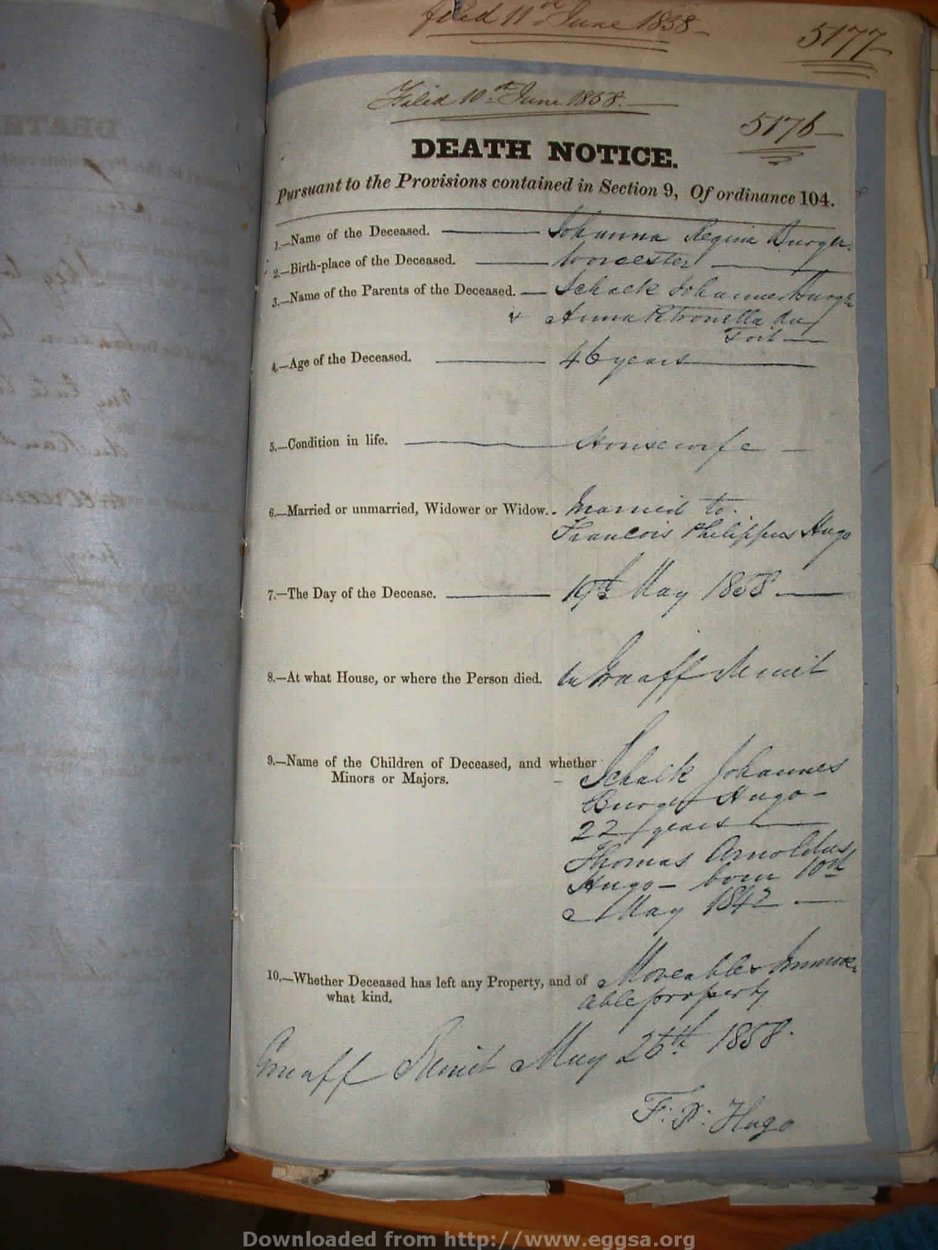 filed 11th June 1858
5177
Filed 10th June 1858.
5176
DEATH NOTICE.
Pursuant to the Provisions contained in Section 9, Of ordinance 104.
1.—Name of the Deceased. — Johanna Regina Burger.
2.—Birth-place of the Deceased. — Worcester —
3.—Name of the Parents of the Deceased. — Schalk Johannes Burger
& Anna Petronella du
Toit —
4.—Age of the Deceased. — 46 years —
5.—Condition in life. — Housewife —
6.—Married or unmarried, Widower or Widow. - Married to
Francois Philippus Hugo
7.—The Day of the Decease. — 19th May 1858 —
8.—At what House, or where the Person died. In Graaff Reinet
9.—Name of the Children of Deceased, and whether Schalk Johannes
Minors or Majors. — Burger Hugo —
22 years —
Thomas Arnoldus
Hugo — born 10th
May 1842 —
10.—Whether Deceased has left any Property, and of Moveable & Immove
what kind. able property
Graaff Reinet May 26th 1858.
F: P: Hugo
Downloaded from http://www.eggsa.org